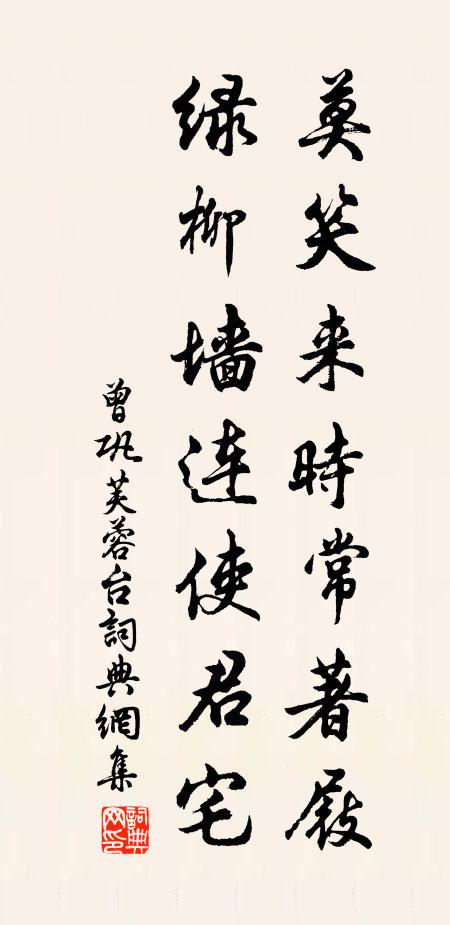 莫笑来時常著屐
绿柳墙连使君宅
曾巩芙蓉台詞典網集
詞典网印